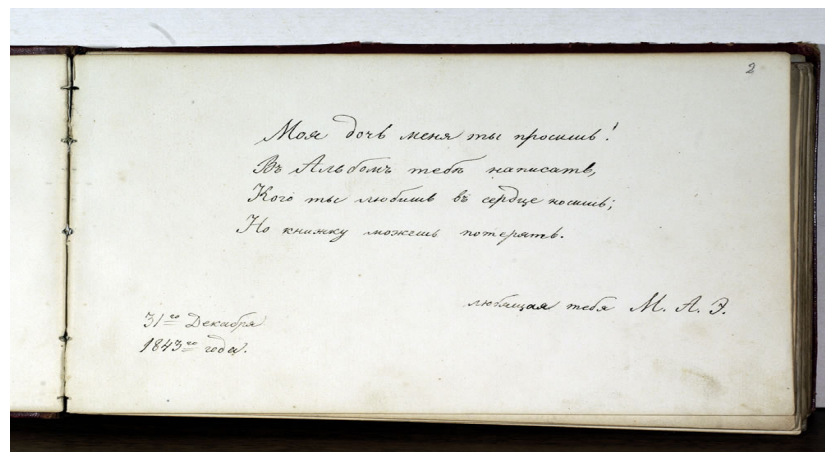 2
Моя дочь меня ты просишь!
Въ Альбомъ тебѣ написать,
Кого ты любишь въ сердце носишь;
Но книжку можешь потерять.
любящая тебя М. А. Э.
31го Декабря
1843го года.